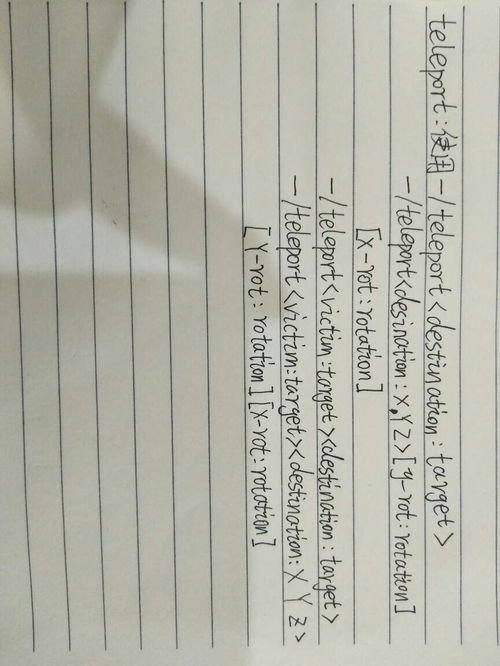 teleport:使用－/teleport<destination:target>
－/teleport<desination:X,YZ>[y-rot:rotation]
[X-rot:rotation]
－/teleport<victim:target><destination:target>
－/teleport<victim:target><destination:X Y Z>
[Y-rot:rotation][X-rot:rotation]